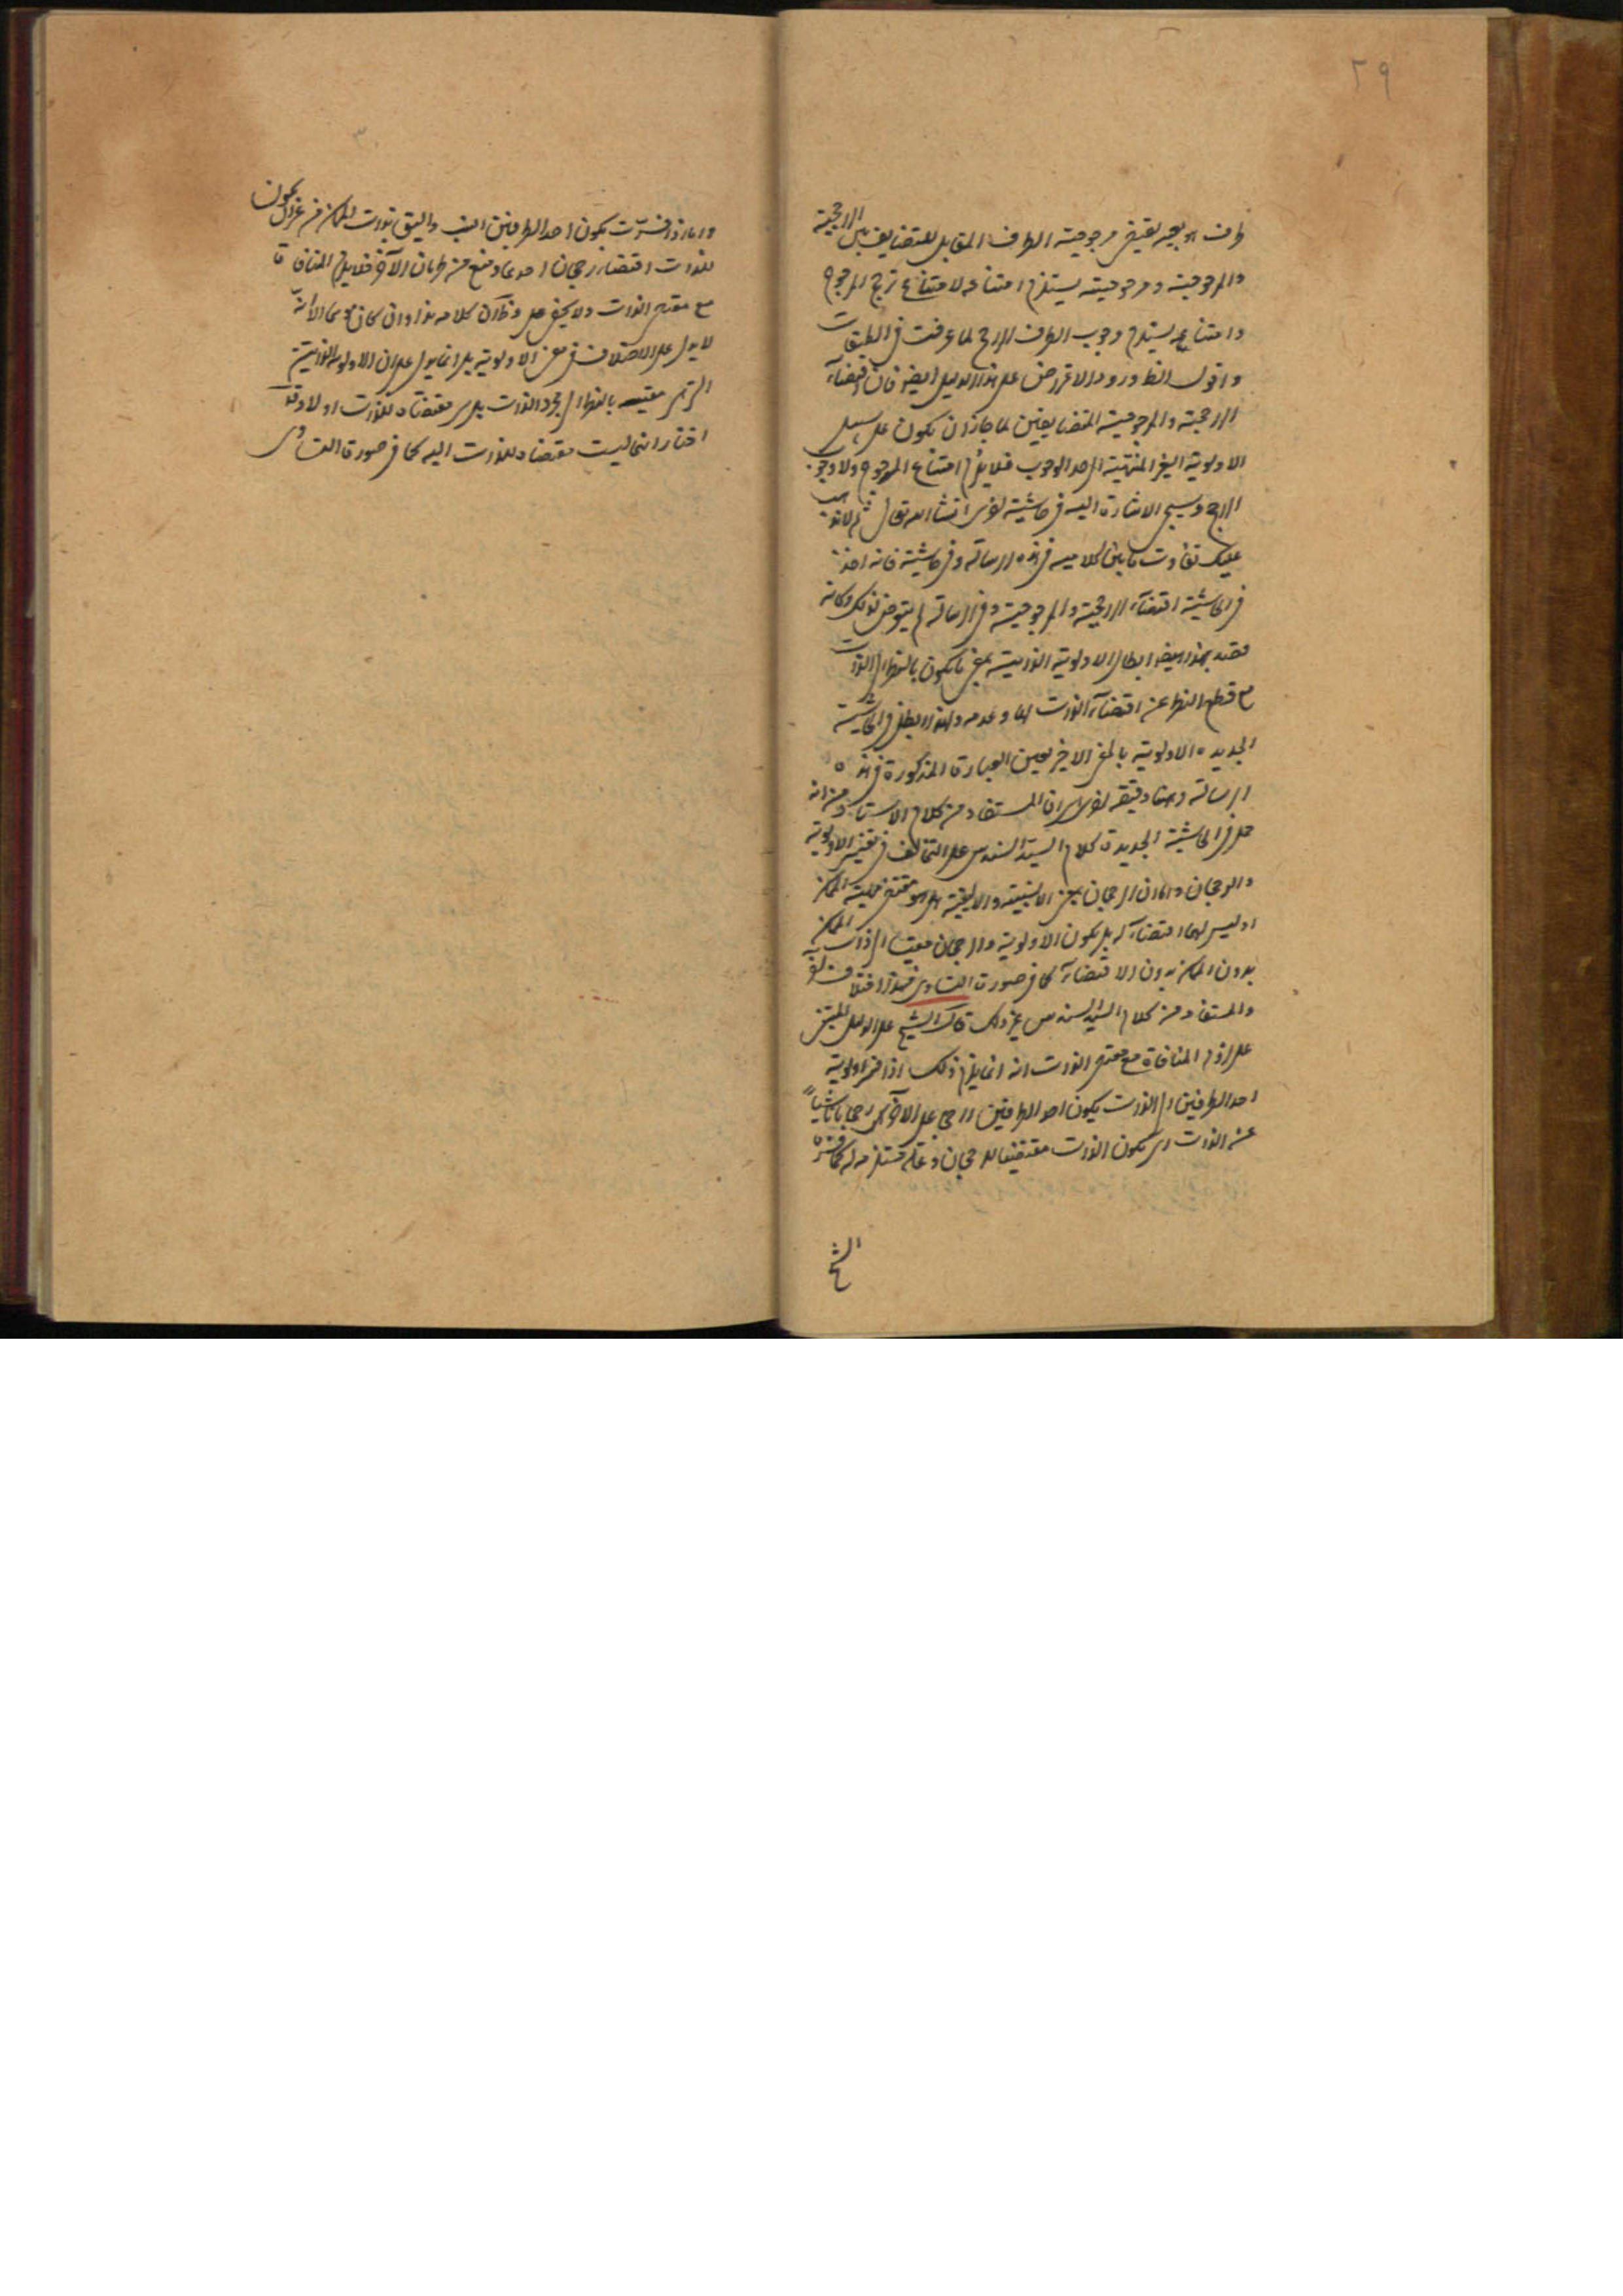 ٢٩
طرف او بعينه يقتضي مرجوحية الطرف المقابل للتضايف بين الراجحية
والمرجوحية ومرجوحيته يستلزم امتناعه لامتناع ترجح المرجوح
وامتناعه يستلزم وجوب الطرف الراجح لما عرفت في الطبقات
واقول انظ ورود الاعتراض على هذا الدليل ايضا فان اقتضاء
الراجحية والمرجوحية المتضايفين لما جاز ان يكون على سبيل
الاولوية الغير المنتهية الى حد الوجوب فلا يلزم امتناع المرجوح ولا وجوب
الراجح وسيجئ الاشارة اليه في حاشية لاخرى انشا الله تعالى ثم لا يذهب
عليك تفاوت ما بين كلاميه في هذه الرسالة وفي حاشيته فانه اخذ
في الحاشية اقتضاء الراجحية والمرجوحية وفي الرسالة لم يتعرض لذلك وكانه
قصد بهذا ايضا ابطال الاولوية الذاتية بمعنى ما يكون بالنظر الى الذات
مع قطع النظر عن اقتضاء الذات لها وعدمه ولهذا ابطل في الحاشية
الجديده الاولوية بالمعنى الاخير بعين العبارة المذكورة في هذه
الرسالة وههنا دقيقة اخرى هي ان المستفاد من كلام الاستاد من انه
حمل في الحاشية الجديدة كلام السيد السند س على التخالف في تفسير الاولوية
والرجحان وان الرجحان بمعنى الانسبية والاليقية هل هو مقتضى ماهية الممكن
او ليس لها اقتضاء له بل يكون الاولوية والرجحان مقيسا الى ذات الممكن
بدون الممكن بدون الاقتضاء كما في صورة التساوي فهذا اختلاف
والمستفاد من كلام السيد السند س غير ذلك قال الشيخ على الدليل المبتني
على لزوم المنافاة مع مقتضى الذات انه انما يلزم ذلك اذا فسر اولوية
احد الطرفين الى الذات يكون احد الطرفين راجحا على الآخر رجحانا ناشيا
عن الذات اي يكون الذات مقتضيا للرجحان وعلة مستلزمه له كما فسره
الشيخ
واما اذا فسرت بكون احد الطرفين انسب واليق بذات الممكن من غير ان يكون
للذات اقتضاء رجحان احدهما ومنع من طريان الآخر فلا يلزم المنافاة
مع مقتضى الذات ولا يخفى على ان كلامه هذا وان كان الا انه
لا يدل على الاختلاف في معنى الاولوية بل انما يدل على ان الاولوية الذاتية
التي هي مقيسه بالنظر الى مجرد الذات هل هي مقتضاة للذات او لا وقد
اختار انها ليست مقتضاة للذات اليه كما في صورة التساوى